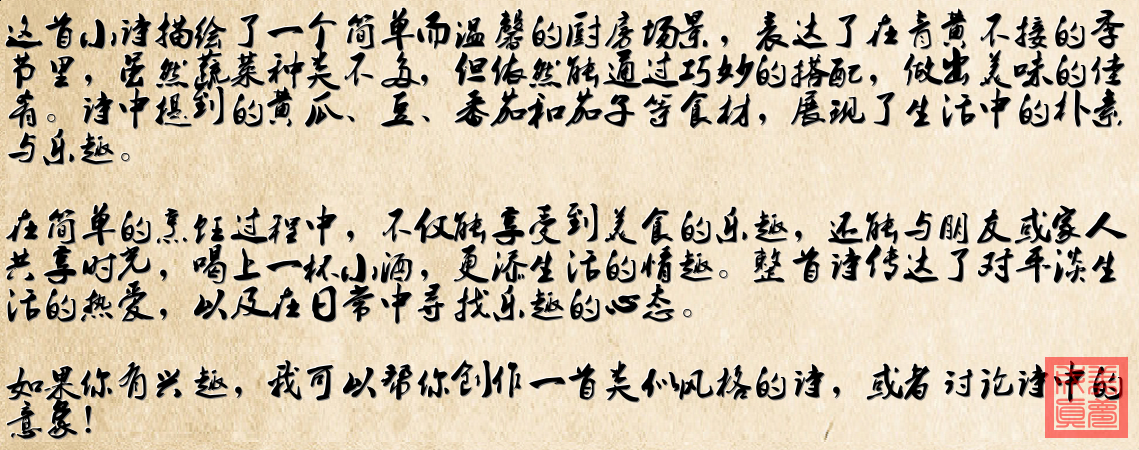 这首小诗描绘了一个简单而温馨的厨房场景，表达了在青黄不接的季
节里，虽然蔬菜种类不多，但依然能通过巧妙的搭配，做出美味的佳
肴。诗中提到的黄瓜、豆、番茄和茄子等食材，展现了生活中的朴素
与乐趣。
在简单的烹饪过程中，不仅能享受到美食的乐趣，还能与朋友或家人
共享时光，喝上一杯小酒，更添生活的情趣。整首诗传达了对平淡生
活的热爱，以及在日常中寻找乐趣的心态。
如果你有兴趣，我可以帮你创作一首类似风格的诗，或者讨论诗中的
意象！